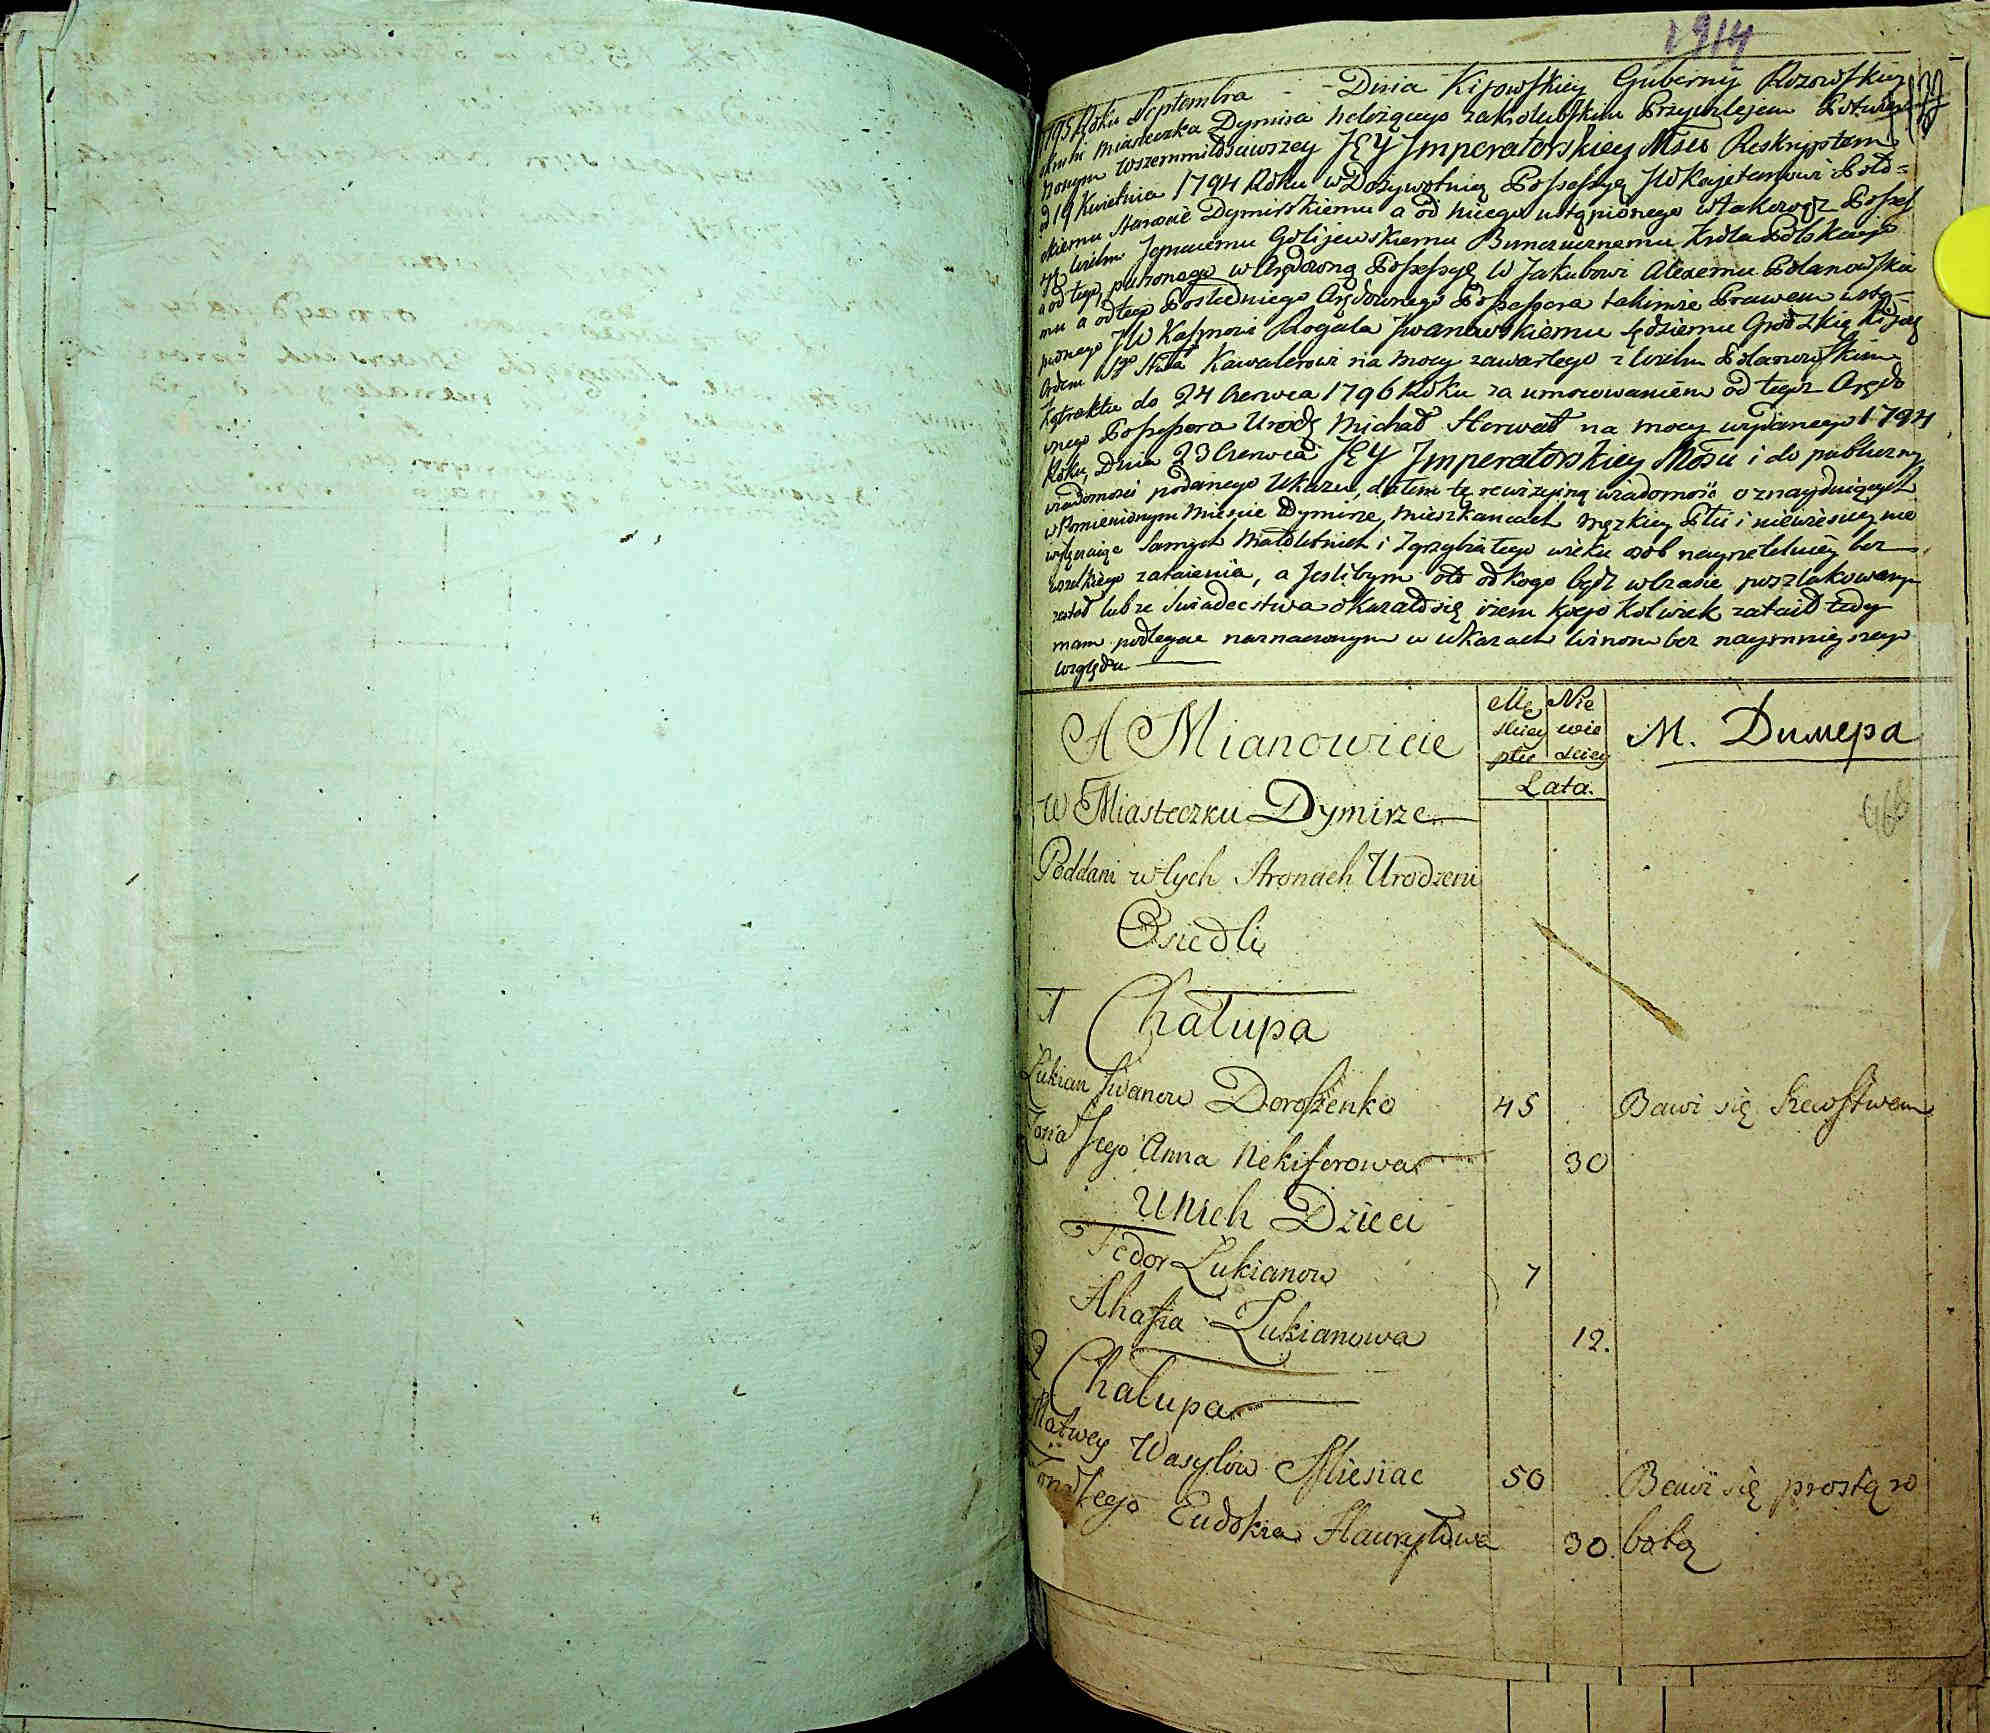 1914
1795 Roku Septembra - - Dnia Kijowskiey Guberny
Miasteczka Dymira należącego Przywilejem
Wszemmiłosciwszey JĘY Jmperatorskiey Mści Reskryptem
19 Kwietnia 1794 Roku w Dożywotnią Possessyą JW Kajetanowi
Staroscie Dymirskiemu a od niego ustąpionego
Wielm Jgnacemu Golijewskiemu Bunczucznemu Króla Polskiego
a od tego puszczonego w Arędowną Possessyą W Jakubowi Alexemu
mu a od tego Posledniego Arędownego Possessora takimże Prawem ustą-
pionego JW Rogala Jwanowskiemu Sędziemu Grodzkie
Kawalerowi na mocy zawartego z Wielm Polanowskim
Kontraktu do 24 Czerwca 1796 Roku za umocowaniem od tegoż Arędo
wnego Possessora Urodz Michał Horwatt na mocy wydanego 1794
Roku, Dnia 23 Czerwca JĘY Jmperatorskiey Mości i do publiczney
wiadomości podanego Ukazu, dałem tę rewizyiną wiadomość o znayduiących
w Pomienionym Miescie Dymirze, Mieszkancach męzkiey Płci i niewiesciey nie
wyłączaiąc Samych Małoletnich i Zgrzybiałego wieku osob nayrzetelniey bez
wszelkiego zataienia, a Jeslibym od kogo bądz w czasie poszlakowany
został lub ze świadectwa okazało się iżem kogo kolwiek zataił tedy
mam podlegac naznaczonym w Ukazach winom bez naymnieyszego
względu
A Mianowicie
Mę
skiey
płci
Nie
wie
sciey
Lata.
М. Димера
W Miasteczku Dymirze
Poddani w tych Stronach Urodzeni
Osiedli
1 Chałupa
Łukian Jwanow Doroszenko 45 Bawi się Szewstwem
Żona Jego Anna Nekiforowa 30
U nich Dzieci
Fedor Łukianow 7
Ahafia Łukianowa 12.
2 Chałupa
Matwey Wasylow Miesiac 50 Bawi się prostą ro
Żona Jego Eudokia Hawryłowa 30. botą